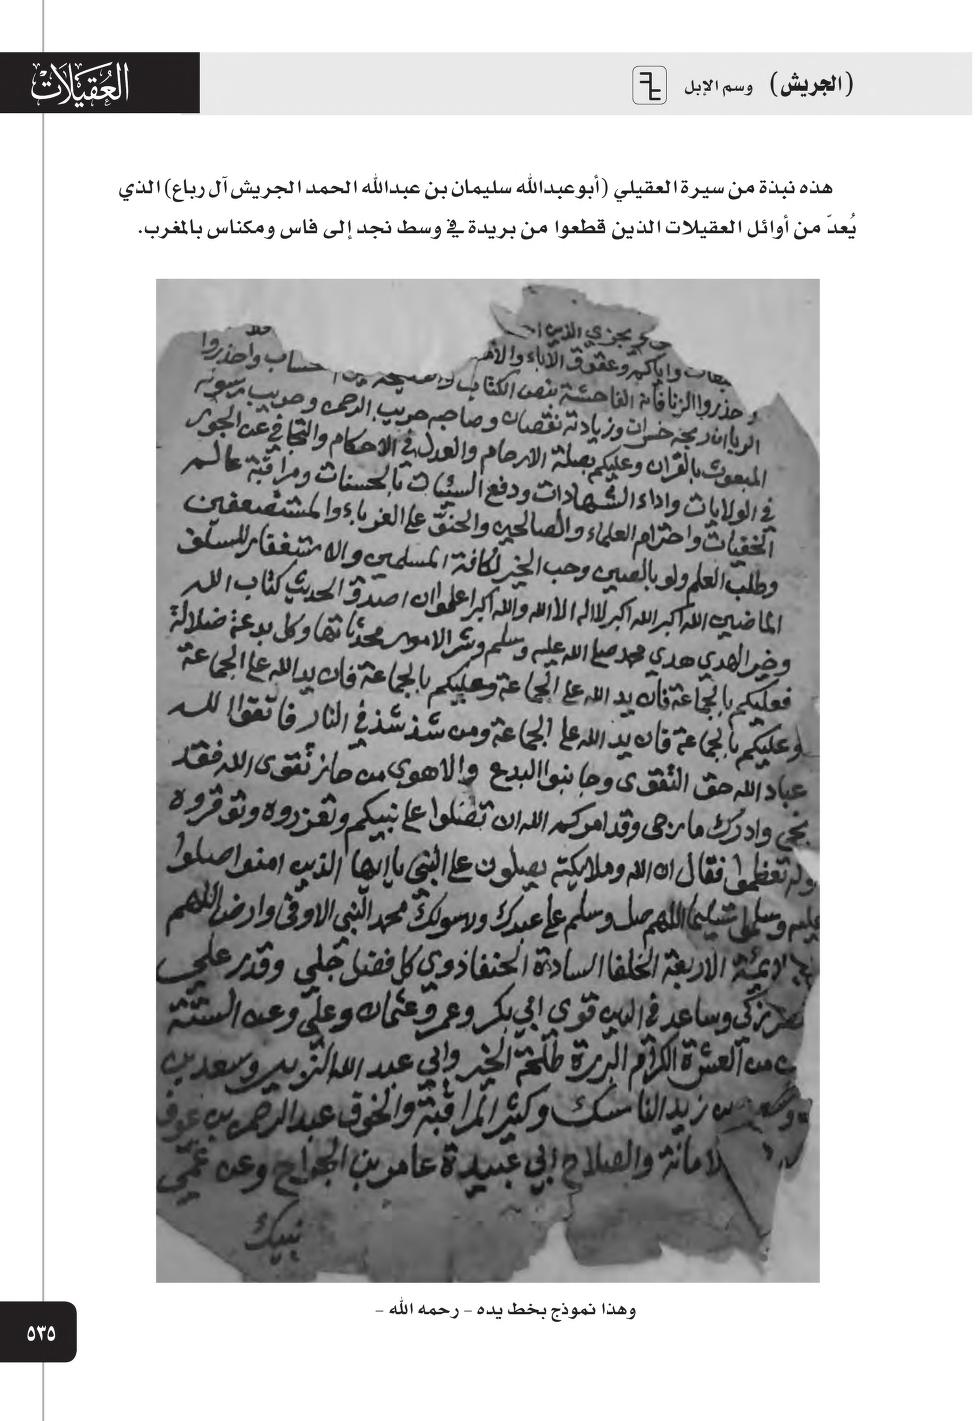 (الجريش) وسم الإبل
العُقيلات
هذه نبذة من سيرة العقيلي (أبو عبدالله سليمان بن عبدالله الحمد الجريش آل رباع) الذي
يُعدّ من أوائل العقيلات الذين قطعوا من بريدة في وسط نجد إلى فاس ومكناس بالمغرب.
يجزي الذين
وإياكم وعقوق الآباء والأمهات
واحذروا
وحذروا الزنا فإنه الفاحشة بنص الكتاب
الربا إن ربحه خسران وزيادته نقصان وصاحبه حريب الرحمن وحريب رسوله
المبعوث بالقران وعليكم بصلة الارحام والعدل في الاحكام والتجافي عن الجور
في الولايات واداء الشهادات ودفع السيئات بالحسنات ومراقبة عالم
الخفيات واحترام العلماء والصالحين والحنو على الغرباء والمستضعفين
وطلب العلم ولو بالصين وحب الخير لكافة المسلمين والاستغفار للسلف
الماضين الله اكبر الله اكبر لا اله الا الله والله اكبر اعلموا ان اصدق الحديث كتاب الله
وخير الهدي هدي محمد صلى الله عليه وسلم وشر الامور محدثاتها وكل بدعة ضلالة
فعليكم بالجماعة فان يد الله على الجماعة وعليكم بالجماعة فان يد الله على الجماعة
وعليكم بالجماعة فان يد الله على الجماعة ومن شذ شذ في النار فاتقوا الله
عباد الله حق التقوى وجانبوا البدع والاهوى من حاز تقوى الله فقد
نجى وادرك ما رجى وقد امركم الله ان تصلوا على نبيكم وتعزروه وتوقروه
وله تعظموا فقال ان الله وملايكته يصلون على النبي ياايها الذين امنوا صلوا
عليه وسلموا تسليما اللهم صل وسلم على عبدك ورسولك محمد النبي الاوفى وارض اللهم
الايمة الاربعة الخلفا السادة الحنفا ذوي كل فضل جلي وقدر علي
زكى وساعد في الدين قوى ابي بكر وعمر وعثمان وعلي وعن الستة
من العشرة الكرام البررة طلحة الخير وابي عبد الله الزبير وسعد بن
بن زيد الناسك وكثير المراقبة والخوف عبد الرحمن بن عوف
لامانة والصلاح ابي عبيدة عامر بن الجراح وعن عمي
نبيك
وهذا نموذج بخط يده – رحمه الله –
٥٣٥